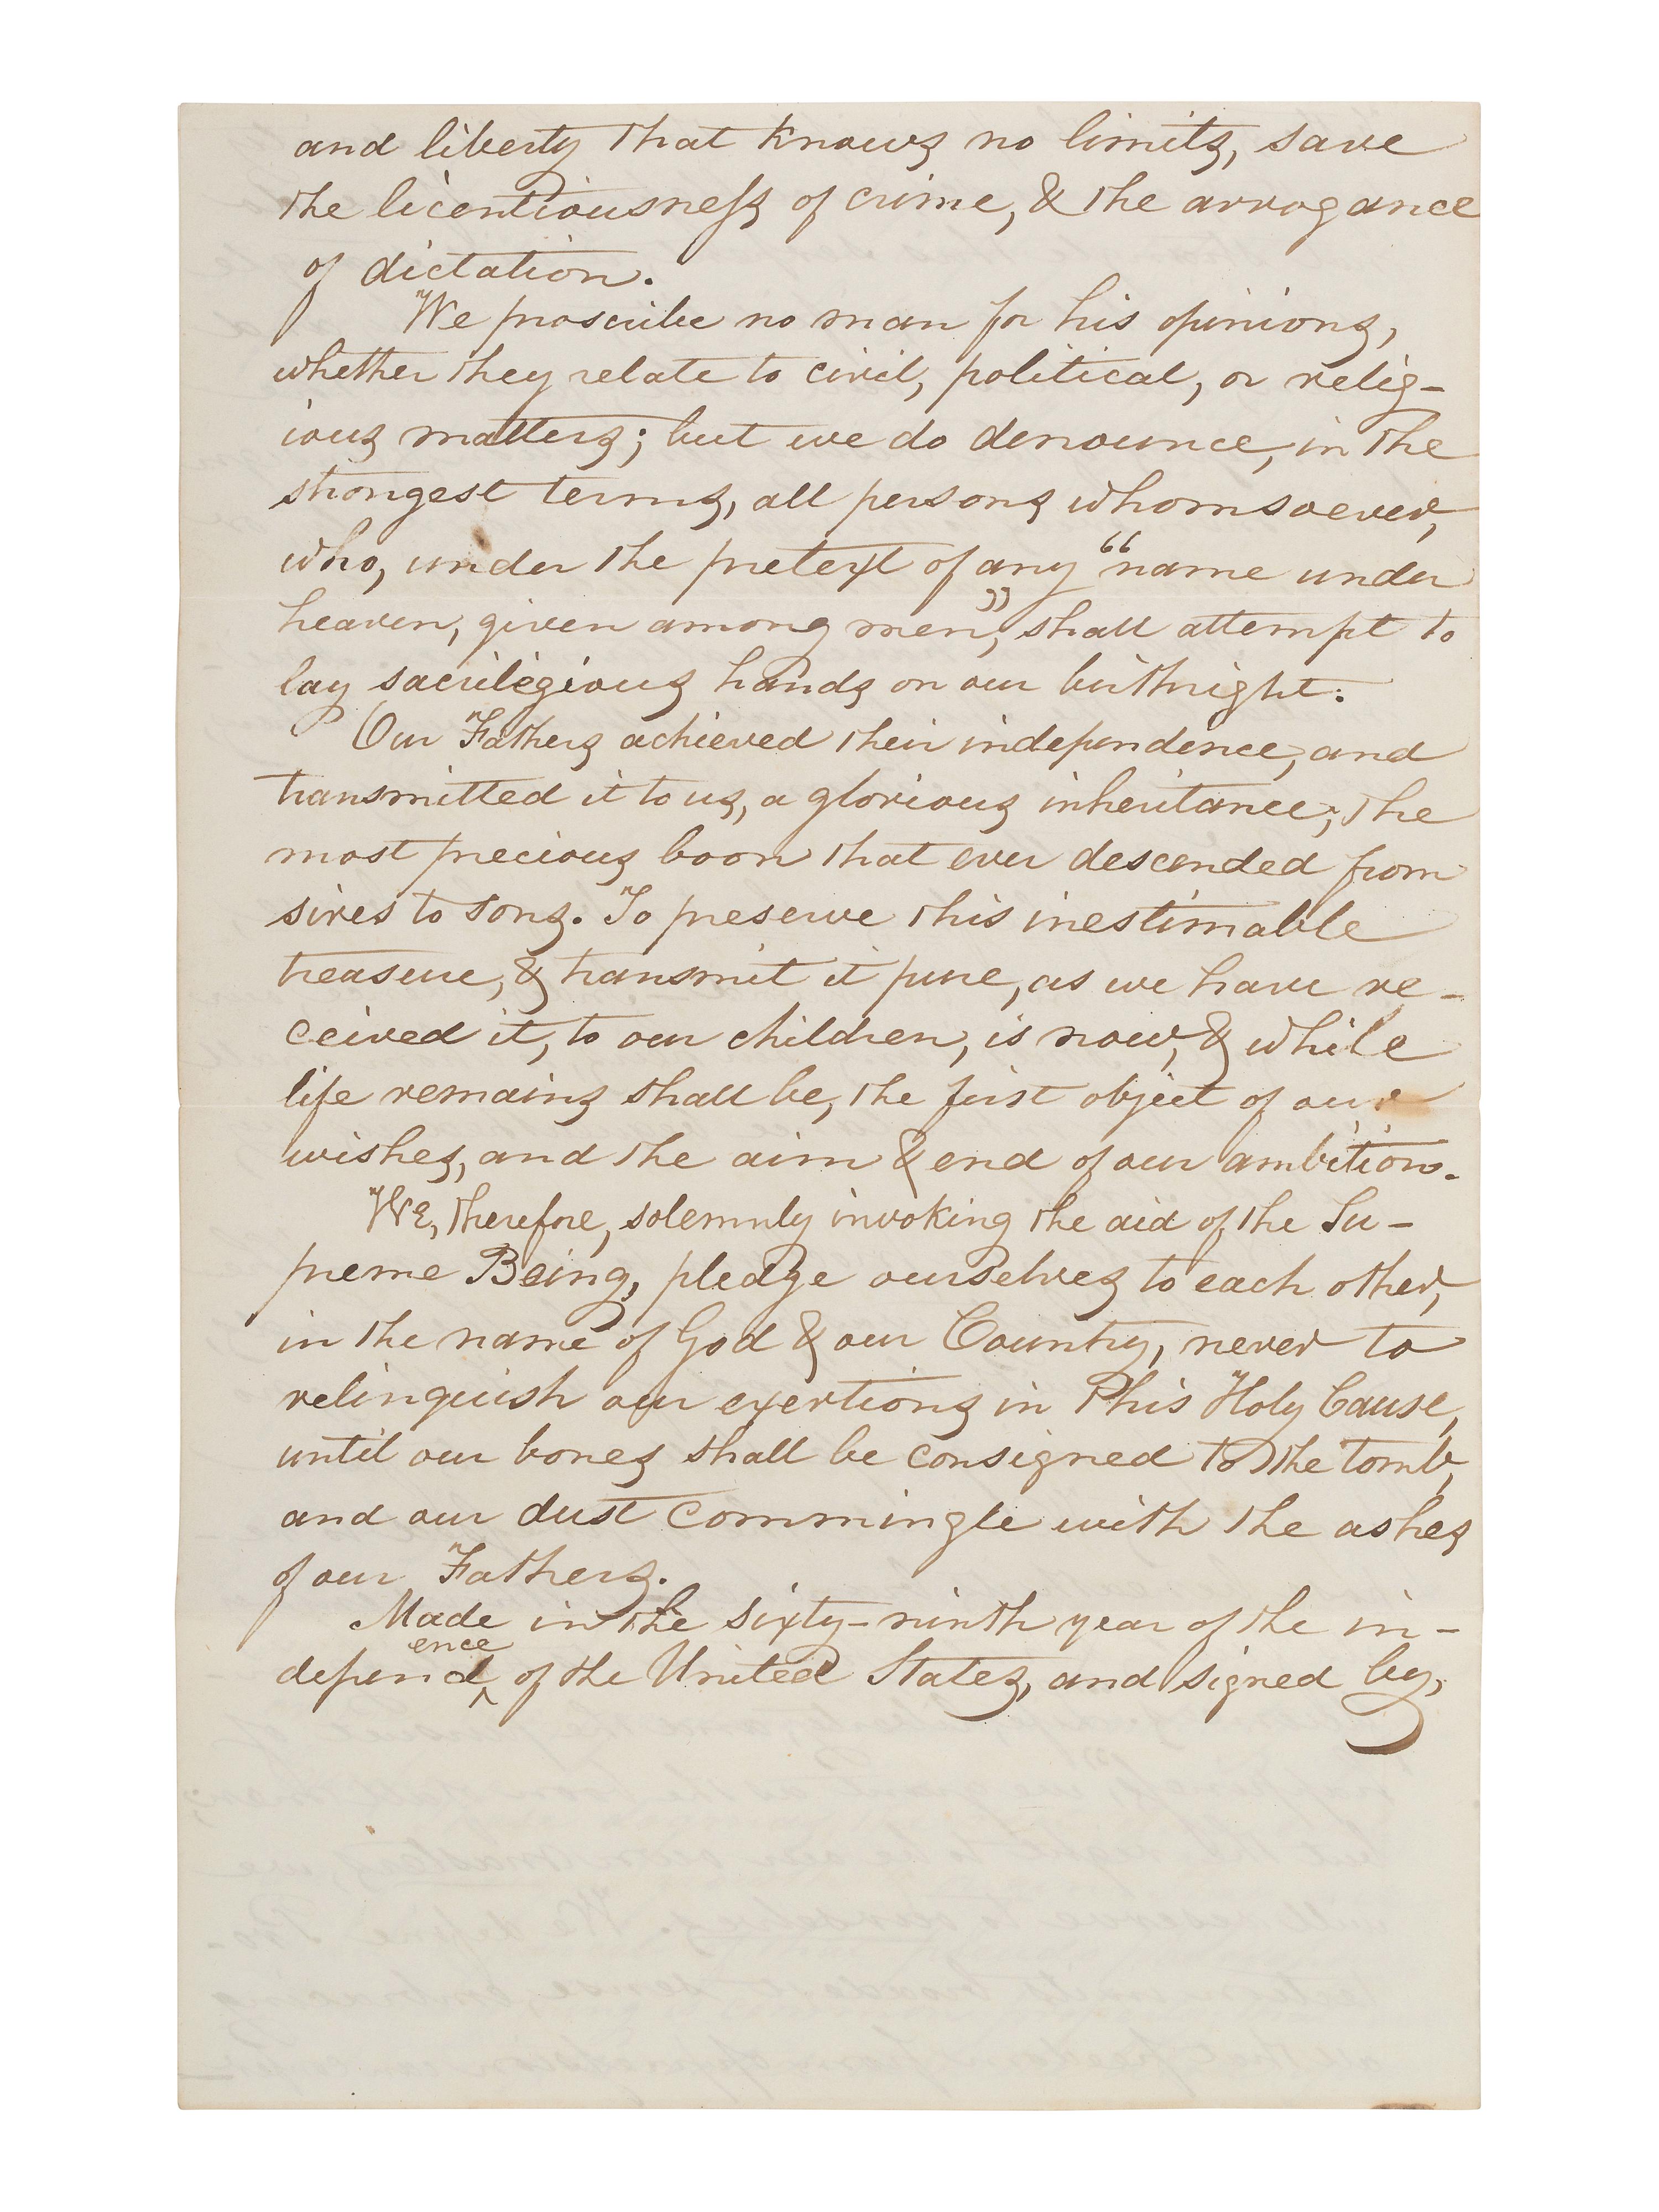 and liberty that knows no limits, save
the licentiousneſs of crime, & the arrogance
of dictation.
We proscribe no man for his opinions,
whether they relate to civil, political, or relig-
ious matters; but we do denounce, in the
strongest terms, all persons whomsoever,
who, under the pretext of any "name under
heaven, given among men," shall attempt to
lay sacriligious hands on our birthright.
Our Fathers achieved their independence, and
transmitted it to us, a glorious inheritance; the
most precious boon that ever descended from
sires to sons. To preserve this inestimable
treasure, & transmit it pure, as we have re-
ceived it, to our children, is now, & while
life remains shall be, the first object of our
wishes, and the aim & end of our ambition.
We, therefore, solemnly invoking the aid of the Su-
preme Being, pledge ourselves to each other,
in the name of God & our Country, never to
relinquish our exertions in this Holy Cause,
until our bones shall be consigned to the tomb,
and our dust commingle with the ashes
of our Fathers.
Made in the sixty-ninth year of the in-
ence
depend^ of the United States, and signed by,